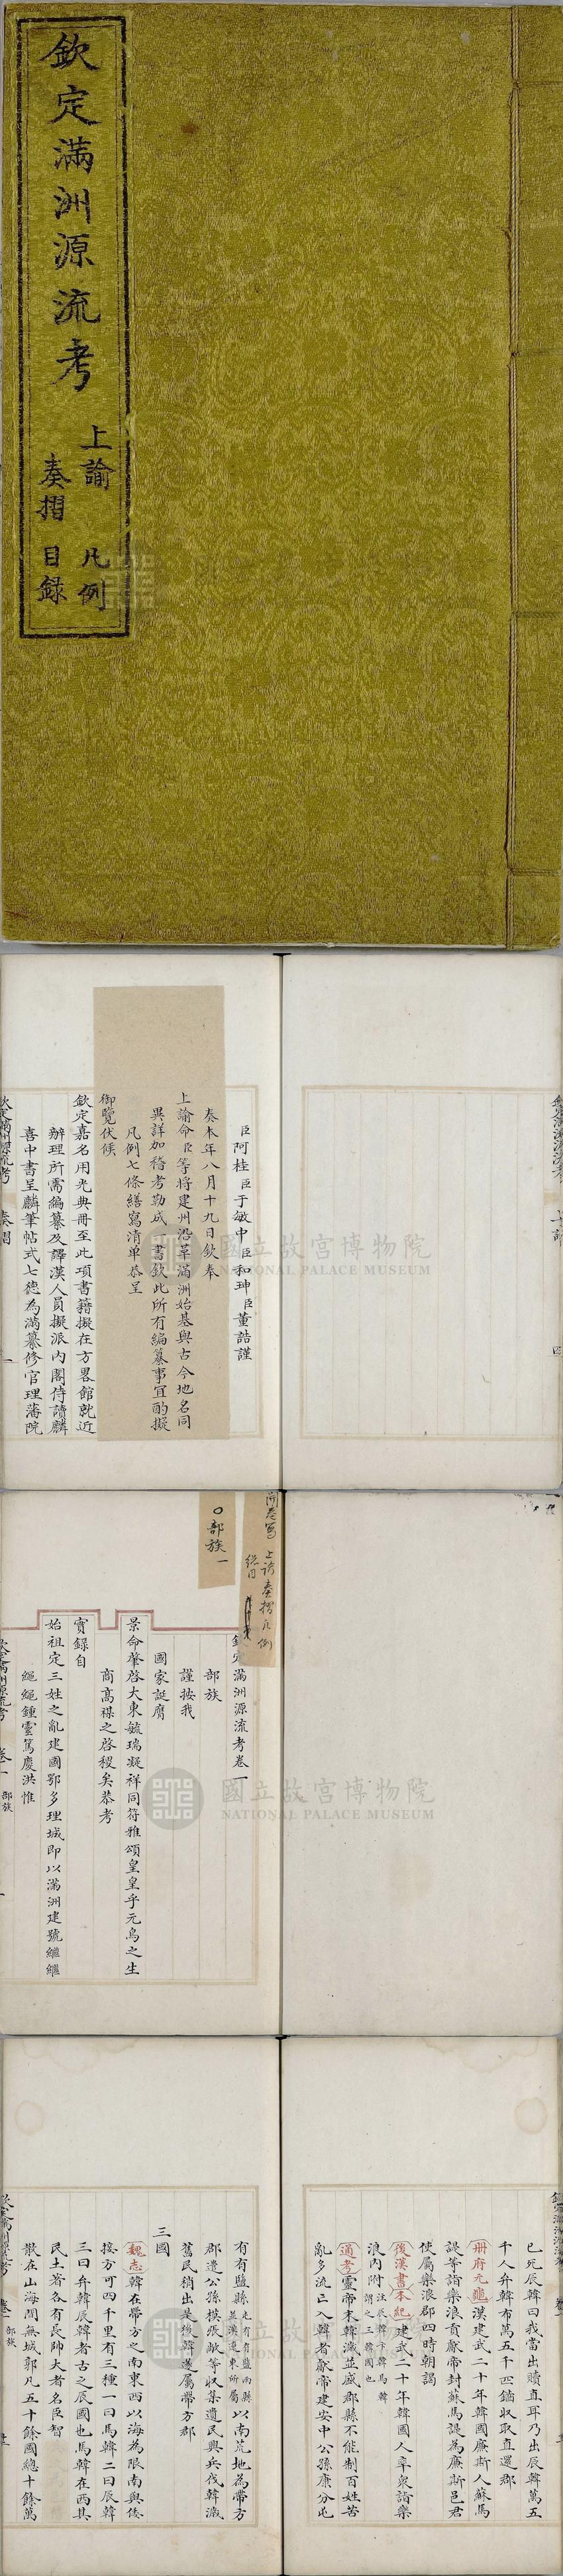 欽定滿洲源流考
上諭 凡例
奏摺 目錄
臣阿桂臣于敏中臣和珅臣董誥謹
奏本年八月十九日欽奉
上諭命臣等將建州沿革滿洲始基與古今地名同
異詳加稽考勒成一書欽此所有編纂事宜酌擬
凡例七條繕寫清单恭呈
御覽伏候
欽定嘉名用光典冊至此項書籍擬在方畧館就近
辦理所需編纂及譯漢人員擬派內閣侍讀麟
喜中書呈麟筆帖式七德為滿纂修官理藩院
欽定滿洲源流考 奏摺 一
國立故宮博物院
NATIONAL PALACE MUSEUM
上諭 凡例
部族一
欽定滿洲源流考卷一
部族
謹按我
國家誕膺
景命肇啓大東毓瑞凝祥同符雅頌皇皇乎元鳥之生
商高禖之啓稷矣恭考
實錄自
始祖定三姓之亂建國鄂多理城即以滿洲建號繼繼
繩繩鍾靈篤慶洪惟
欽定滿洲源流考 卷一 部族 一
國立故宮博物院
NATIONAL PALACE MUSEUM
已死辰韓曰我當出贖直耳乃出辰韓萬五
千人弁韓布萬五千匹鏑收取直還郡
冊府元龜漢建武二十年韓國廉斯人蘇馬
諟等詣樂浪貢獻帝封蘇馬諟為廉斯邑君
使屬樂浪郡四時朝謁
後漢書本紀建武二十年韓國人率衆詣樂
浪內附注辰韓卞韓馬韓謂之三韓國也
通考靈帝末韓濊並盛郡縣不能制百姓苦
亂多流亡入韓者獻帝建安中公孫康分屯
有有鹽縣屯有有鹽兩縣並漢遼東所屬以南荒地為帶方
郡遣公孫模張敞等收集遺民興兵伐韓濊
舊民稍出是後韓遂屬帶方郡
三國
魏志韓在帶方之南東西以海為限南與倭
接方可四千里有三種一曰馬韓二曰辰韓
三曰弁韓辰韓者古之辰國也馬韓在西其
民土著各有長帥大者名臣智
散在山海間無城郭凡五十餘國總十餘萬
欽定滿洲源流考 卷二 部族
國立故宮博物院
NATIONAL PALACE MUSEUM